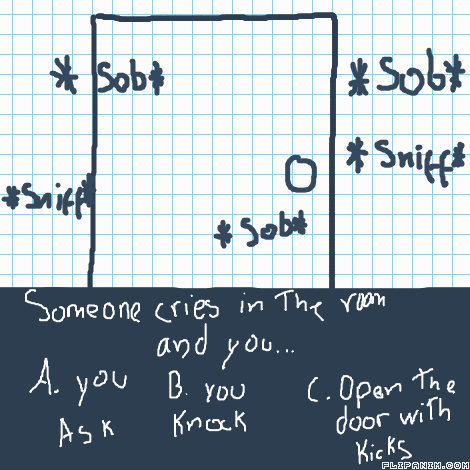 * Sob*
* Sob*
* Sniff*
*Sniff*
* Sob*
Someone cries in The room
and you...
A. you
Ask
B. you
Knock
C. Open The
door with
Kicks
FLIPANIM.COM